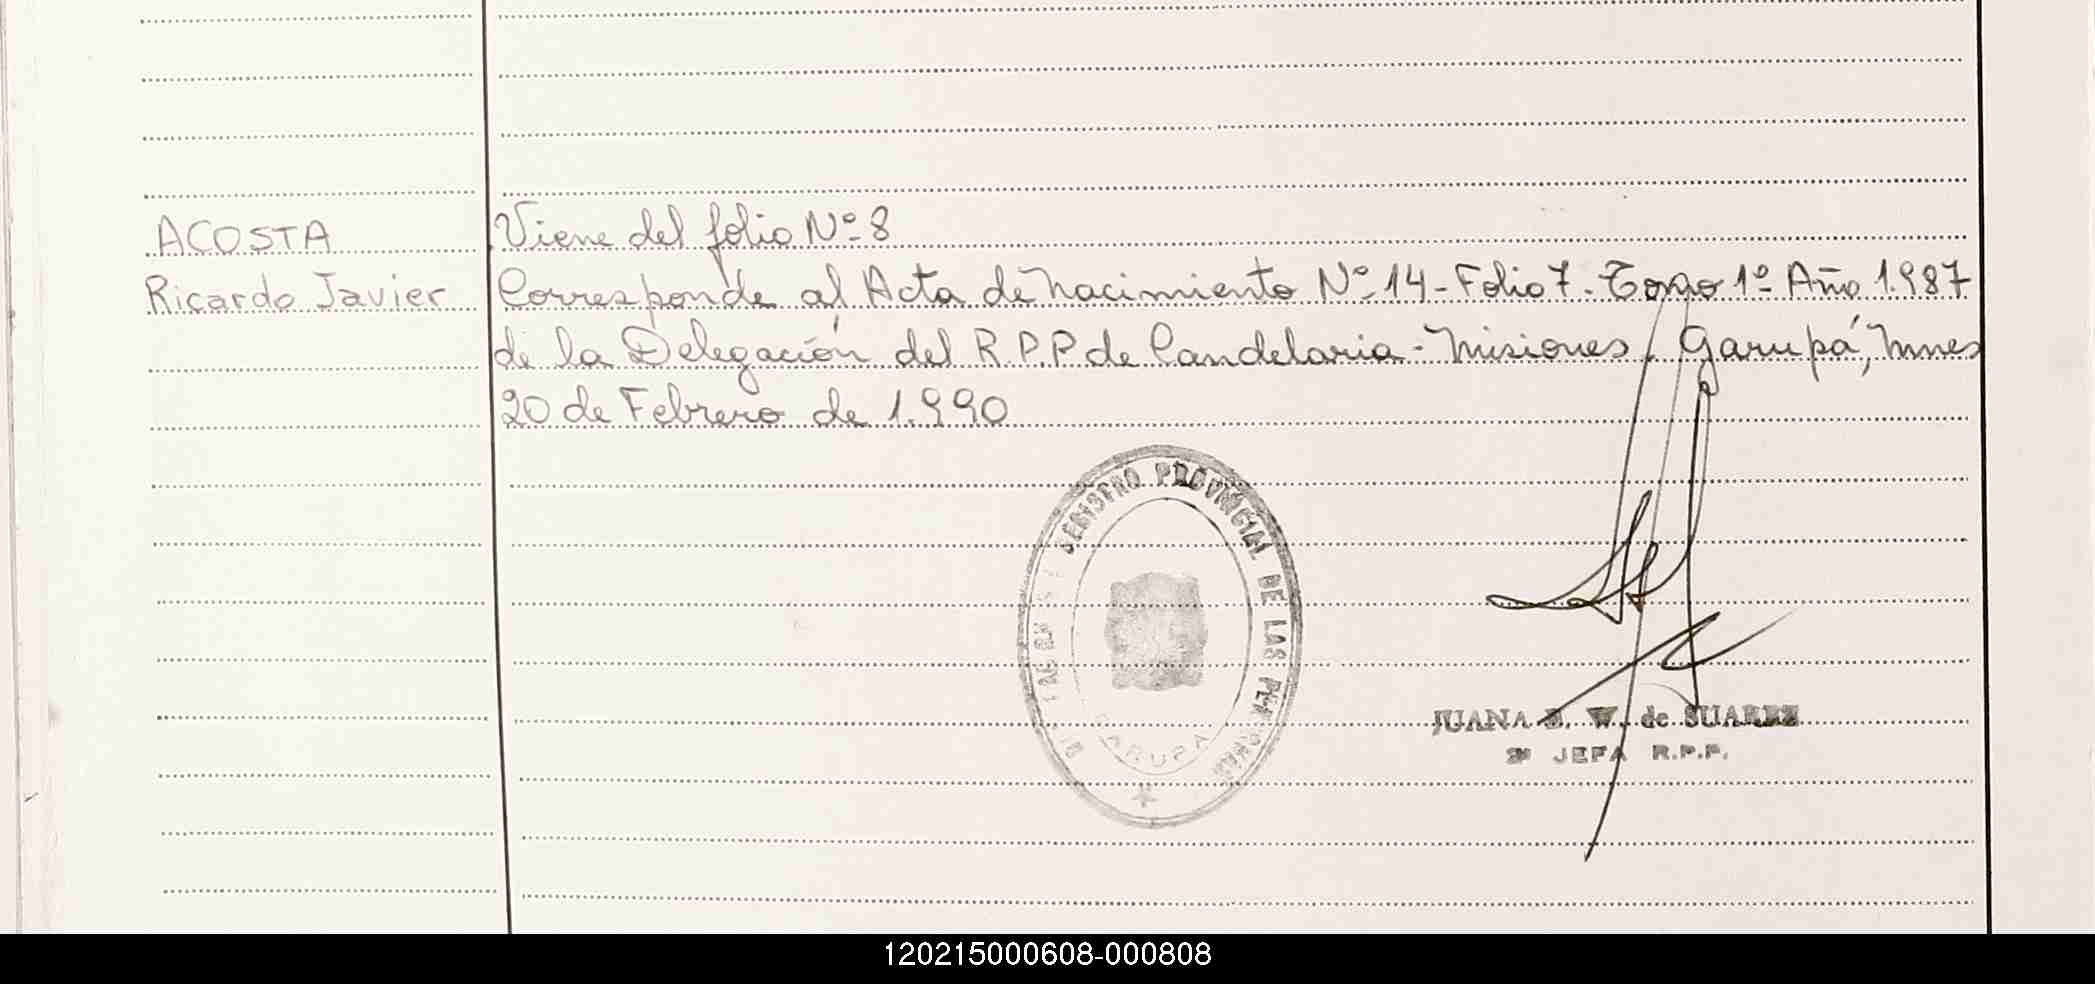 ACOSTA
Ricardo Javier
Viene del folio Nº 8
Corresponde al Acta de Nacimiento Nº 14 - Folio 7 - Tomo 1º Año 1.987
de la Delegación del R.P.P de Candelaria - Misiones. Garupá, Mnes
20 de Febrero de 1.990
REGISTRO PROVINCIAL DE LAS PERSONAS
GARUPA
JUANA W. de SUAREZ
JEFA R.P.P.
120215000608-000808